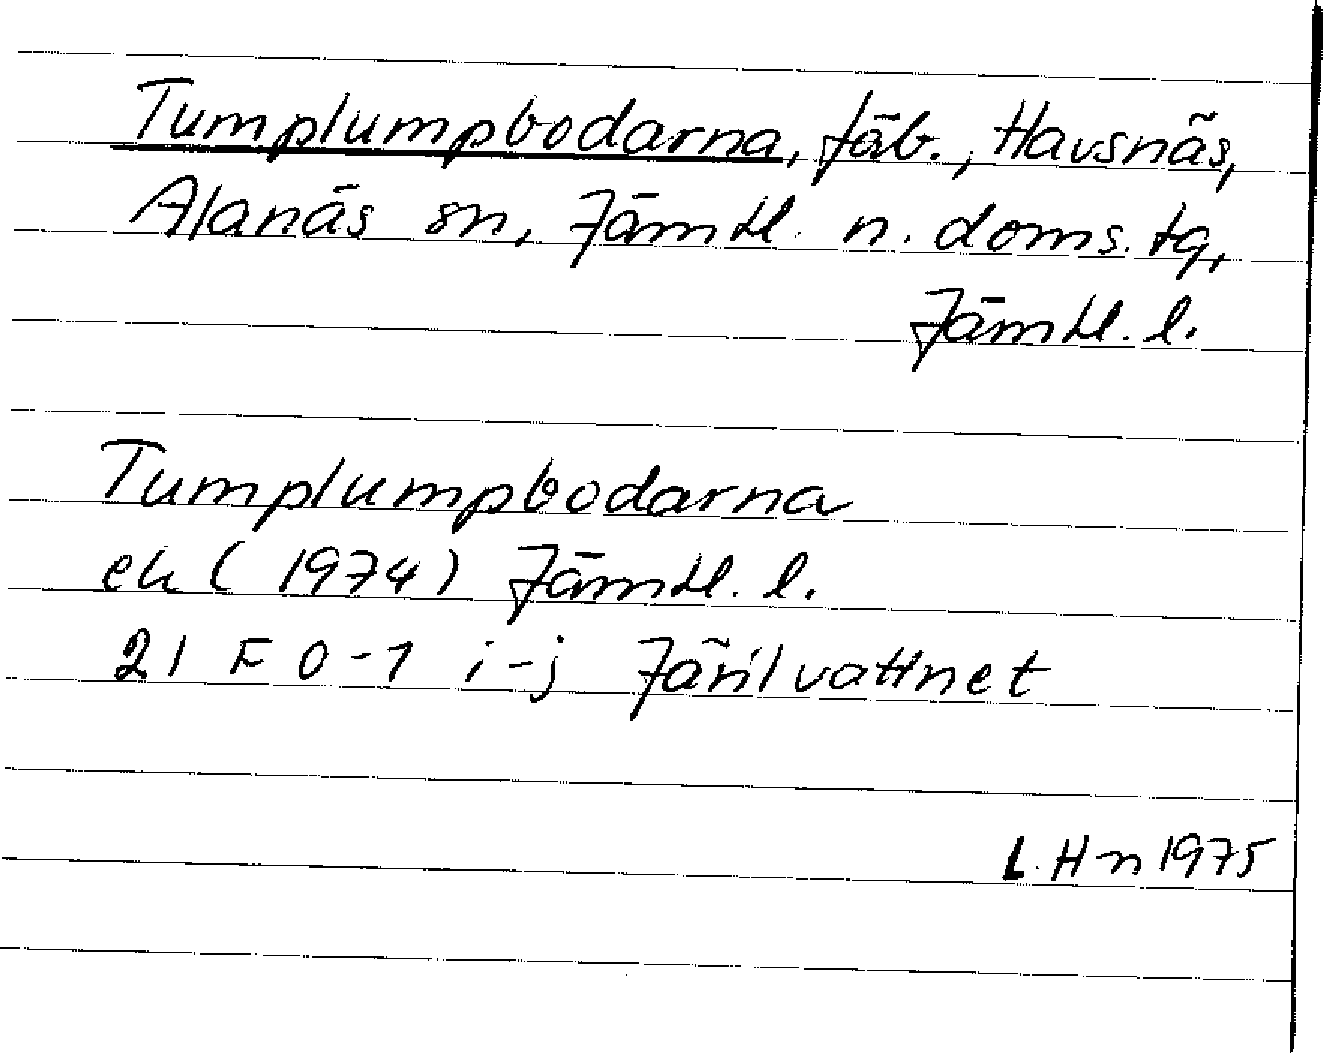 Tumplumpbodarna, fäb., Havsnäs,
Alanäs sn, Jämtl. n. doms. tg,
Jämtl. l.
Tumplumpbodarna
ek (1974) Jämtl. l.
21 F 0-1 i-j Järilvattnet
L. H-n 1975